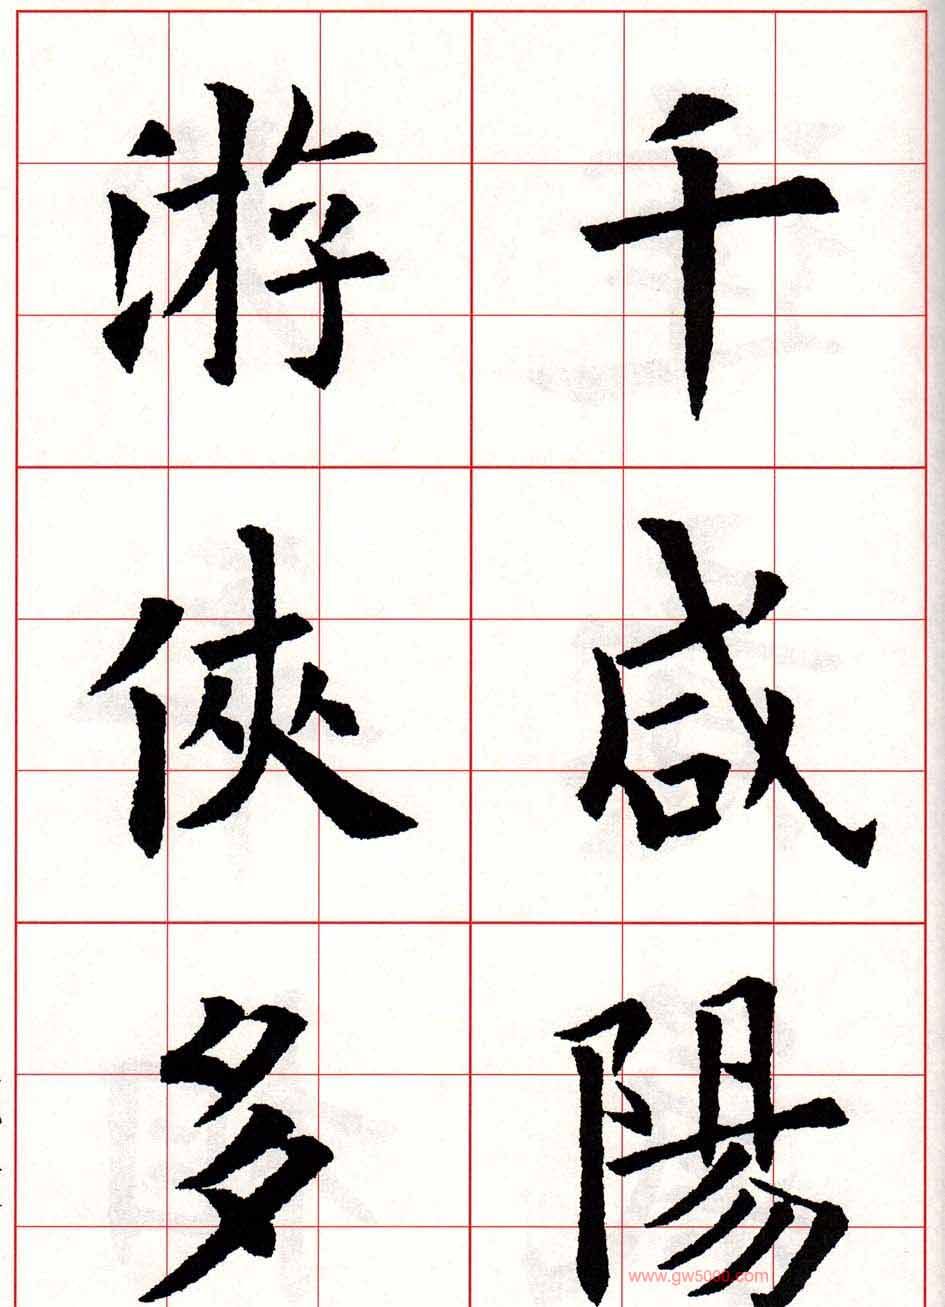 千咸陽
游俠多
www.gw5000.com